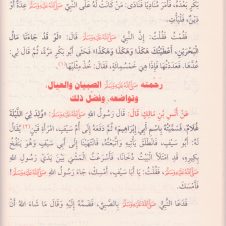 بَكْرٍ بَعْدَهُ، فَأَمَرَ مُنَادِيًا فَنَادَى: مَنْ كَانَتْ لَهُ عَلَى النَّبِيِّ ﷺ عِدَةٌ أَوْ
دَيْنٌ، فَلْيَأْتِ.
فَقُمْتُ فَقُلْتُ: إِنَّ النَّبِيَّ ﷺ قَالَ: «لَوْ قَدْ جَاءَنَا مَالُ
الْبَحْرَيْنِ، أَعْطَيْتُكَ هَكَذَا وَهَكَذَا وَهَكَذَا» فَحَثَى أَبُو بَكْرٍ مَرَّةً، ثُمَّ قَالَ لِي:
عُدَّهَا. فَعَدَدْتُهَا فَإِذَا هِيَ خَمْسُمِائَةٍ، فَقَالَ: خُذْ مِثْلَيْهَا(١).
رحمته ﷺ الصبيان والعيال،
وتواضعه، وفضل ذلك
عَنْ أَنَسِ بْنِ مَالِكٍ قَالَ: قَالَ رَسُولُ اللهِ ﷺ: «وُلِدَ لِيَ اللَّيْلَةَ
غُلَامٌ، فَسَمَّيْتُهُ بِاسْمِ أَبِي إِبْرَاهِيمَ» ثُمَّ دَفَعَهُ إِلَى أُمِّ سَيْفٍ، امْرَأَةِ قَيْنٍ(٢) يُقَالُ
لَهُ: أَبُو سَيْفٍ، فَانْطَلَقَ يَأْتِيهِ وَاتَّبَعْتُهُ، فَانْتَهَيْنَا إِلَى أَبِي سَيْفٍ وَهُوَ يَنْفُخُ
بِكِيرِهِ، قَدِ امْتَلَأَ الْبَيْتُ دُخَانًا، فَأَسْرَعْتُ الْمَشْيَ بَيْنَ يَدَيْ رَسُولِ اللهِ
ﷺ، فَقُلْتُ: يَا أَبَا سَيْفٍ، أَمْسِكْ، جَاءَ رَسُولُ اللهِ ﷺ!
فَأَمْسَكَ.
فَدَعَا النَّبِيُّ ﷺ بِالصَّبِيِّ، فَضَمَّهُ إِلَيْهِ وَقَالَ مَا شَاءَ اللهُ أَنْ